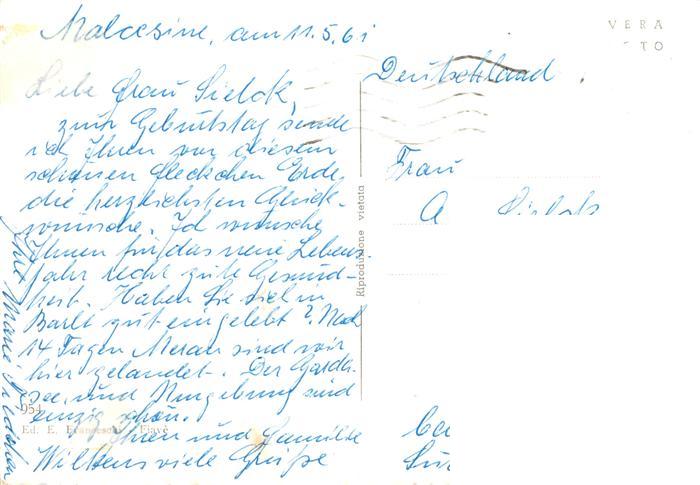 Malcesine, am 11.5.61
Liebe Frau Sielck,
zum Geburtstag sende
ich Ihnen von diesem
schönen Fleckchen Erde,
die herzlichsten Glück-
wünsche. Ich wünsche
Ihnen für das neue Lebens-
jahr recht gute Gesund-
heit. Haben Sie sich in
Barlt gut eingelebt? Nach
14 Tagen Meran sind wir
hier gelandet. Der Garda-
see, und Umgebung sind
einzig schön.
Ihnen und Familie
Wilkens viele Grüße
Ihre
954
Ed. E. Fiavè
Riproduzione vietata
VERA
TO
Deutschland
Frau
A